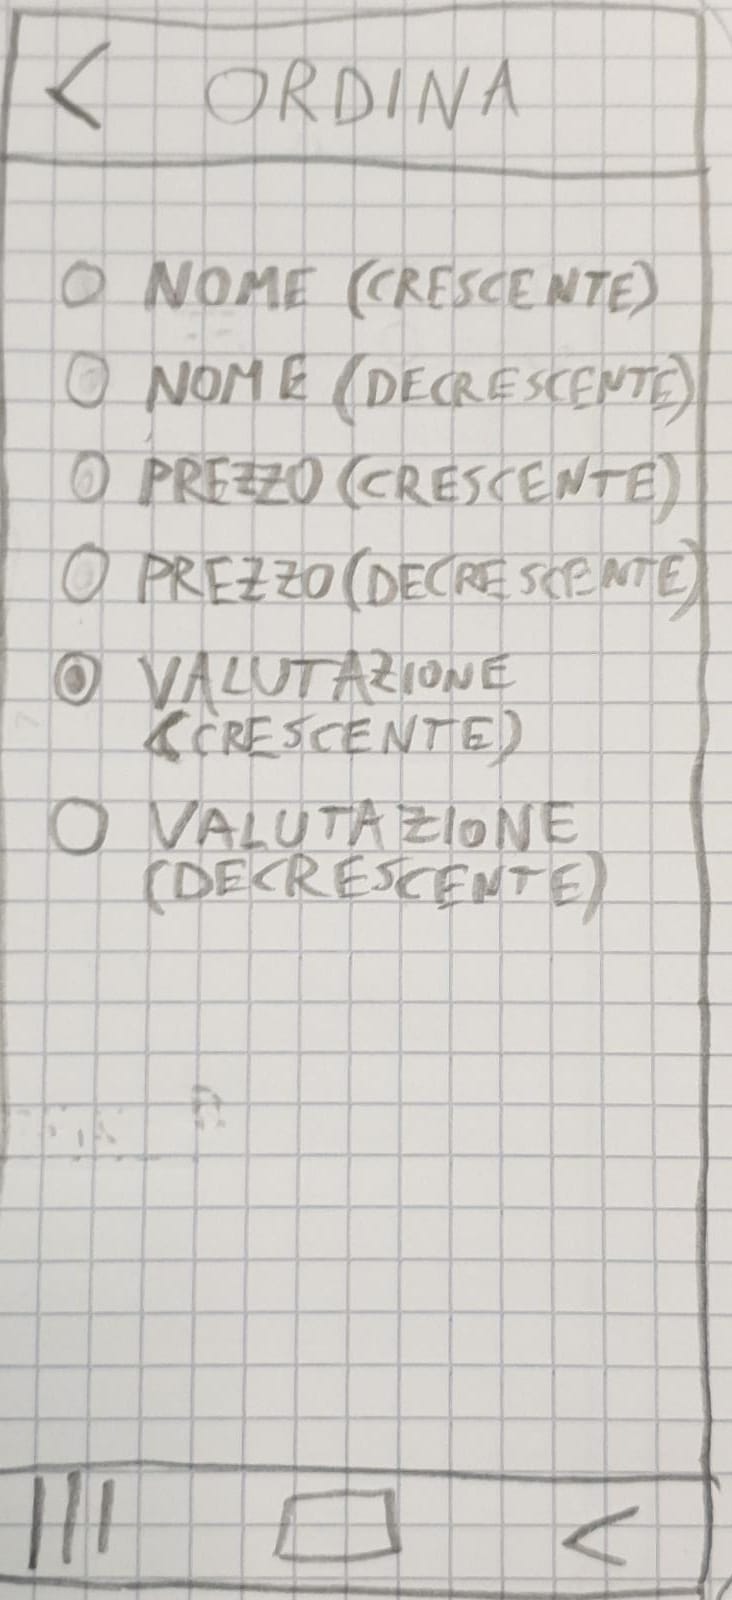 < ORDINA
NOME (CRESCENTE)
NOME (DECRESCENTE)
PREZZO (CRESCENTE)
PREZZO (DECRESCENTE)
VALUTAZIONE
(CRESCENTE)
VALUTAZIONE
(DECRESCENTE)